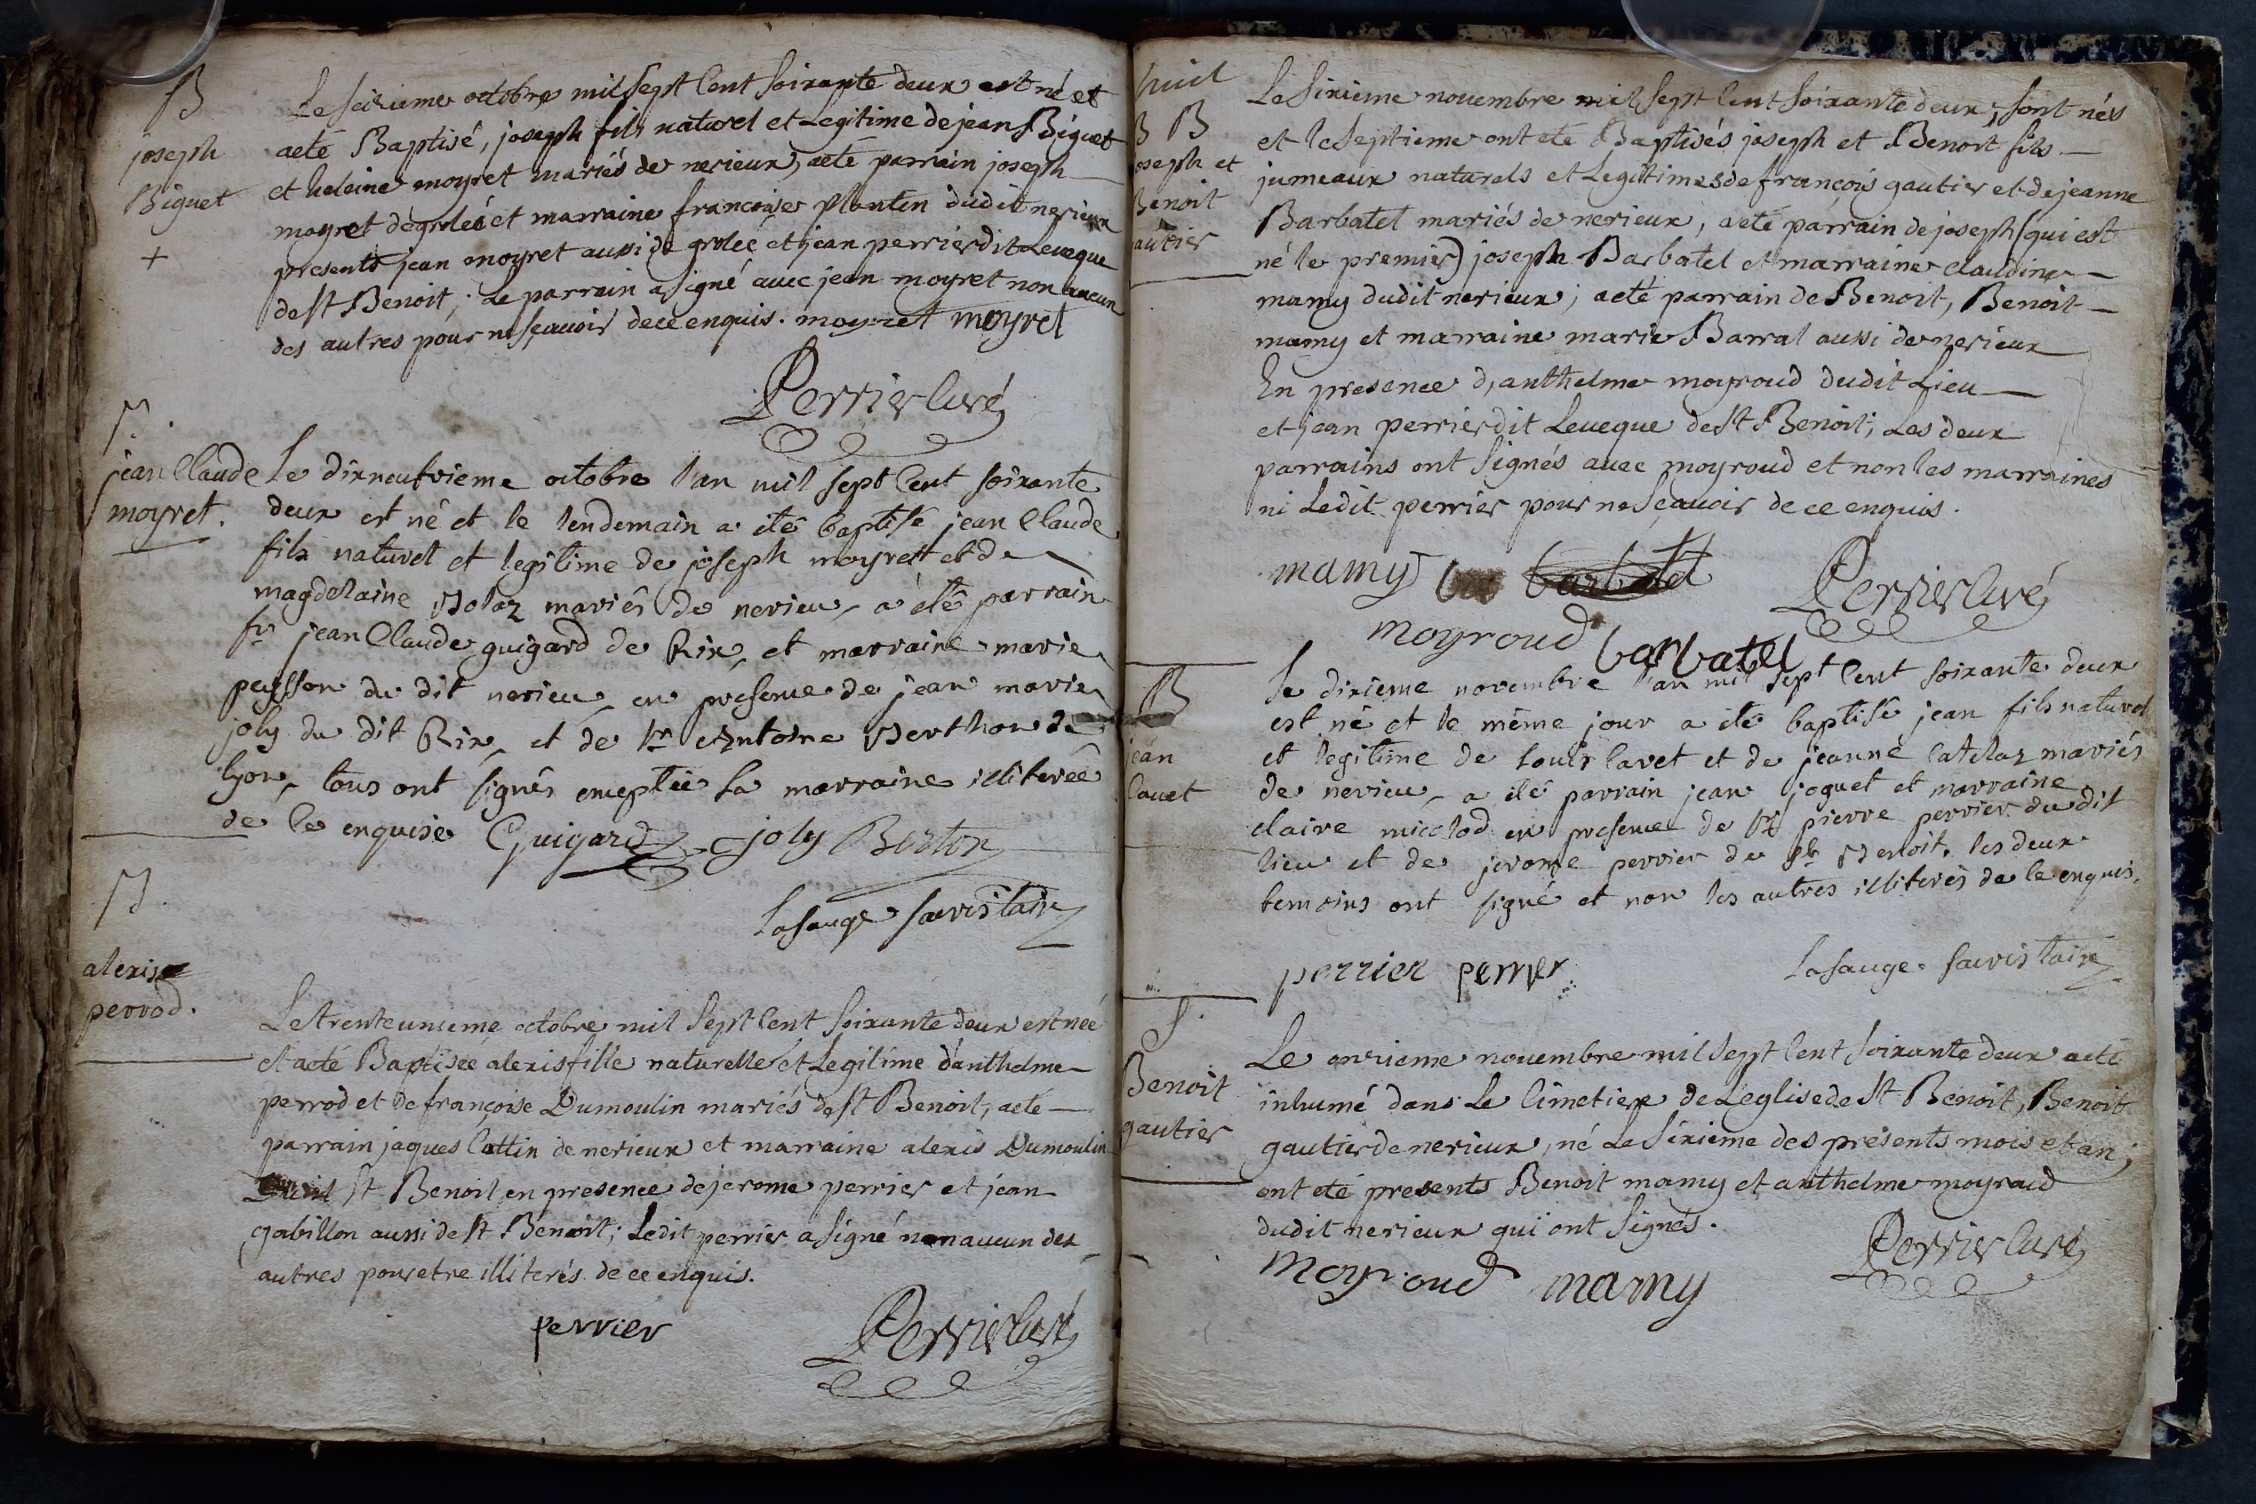 B
joseph
Biguet
+
Le seizieme octobre mil sept Cent soixante deux est né et
aeté Baptisé, joseph fils naturel et Legitime de jean Biguet
et heleine moyret mariés de nerieux, aeté parrain joseph
moyret de grolée et marraine françoise plantin dudit nerieux
presents jean moyret aussi de grolée et jean perrier dit Leveque
de st Benoit; Le parrain a signé avec jean moyret non aucun
des autres pour ne sçavoir de ce enquis. moyret moyret
Perrier Curé
B.
jean Claude
moyret.
Le dixneufvieme octobre l'an mil sept Cent soixante
deux est né et le lendemain a été baptisé jean Claude
fils naturel et legitime de joseph moyrett et de
magdelaine Bolaz mariés de nerieu, a été parrain
sr jean Claude guigard de Rix, et marraine marie
peysson du dit nerieu, en presence de jean marie
joly du dit Rix, et de sr Antoine Berthon de
lyon, tous ont signés exceptée la marraine illiterée
de ce enquise Guigard joly Berton
Lasauge sacristain
B.
alexis
perrod.
Le trente unieme octobre mil sept Cent soixante deux est née
et aeté Baptisée alexis fille naturelle et Legitime d'anthelme
perrod et de françoise Dumoulin mariés de st Benoit, aeté
parrain jaques Cottin de nerieux et marraine alexis Dumoulin
st Benoit en presence de jerome perrier et jean
gabillon aussi de st Benoit; Ledit perrier a signé non aucun des
autres pour etre illiterés de ce enquis.
perrier
Perrier Curé
B B
joseph et
Benoit
gautier
Le sixieme novembre mil sept Cent soixante deux, sont nés
et le septieme ont eté Baptisés joseph et Benoit fils
jumeaux naturels et Legitimes de françois gautier et de jeanne
Barbatel mariés de nerieux, aeté parrain de joseph (qui est
né le premier) joseph Barbatel et marraine claudine
mamy dudit nerieux; aeté parrain de Benoit, Benoit
mamy et marraine marie Barral aussi de nerieux
En presence d'anthelme moyroud dudit Lieu
et jean perrier dit Leveque de st Benoit; Les deux
parrains ont signés avec moyroud et non les marraines
ni Ledit perrier pour ne sçavoir de ce enquis.
mamy barbatel
Perrier Curé
moyroud barbatel
B
jean
Cavet
Le dixieme novembre l'an mil sept Cent soixante deux
est né et le même jour a été baptisé jean fils naturel
et legitime de louis Cavet et de jeanne mariés
de nerieu, a été parrain jean joguet et marraine
claire micolod en presence de sr pierre perrier du dit
lieu et de jerome perrier de st Benoit. les deux
temoins ont signé et non les autres illiterés de ce enquis.
perrier perrier
Lasauge sacristain
S.
Benoit
gautier
Le onzieme novembre mil sept Cent soixante deux aeté
inhumé dans Le Cimetiere de Leglise de st Benoit, Benoit
gautier de nerieux, né Le sixieme des présents mois et an;
ont eté presents Benoit mamy et anthelme moyroud
dudit nerieux qui ont signés.
moyroud mamy
Perrier Curé